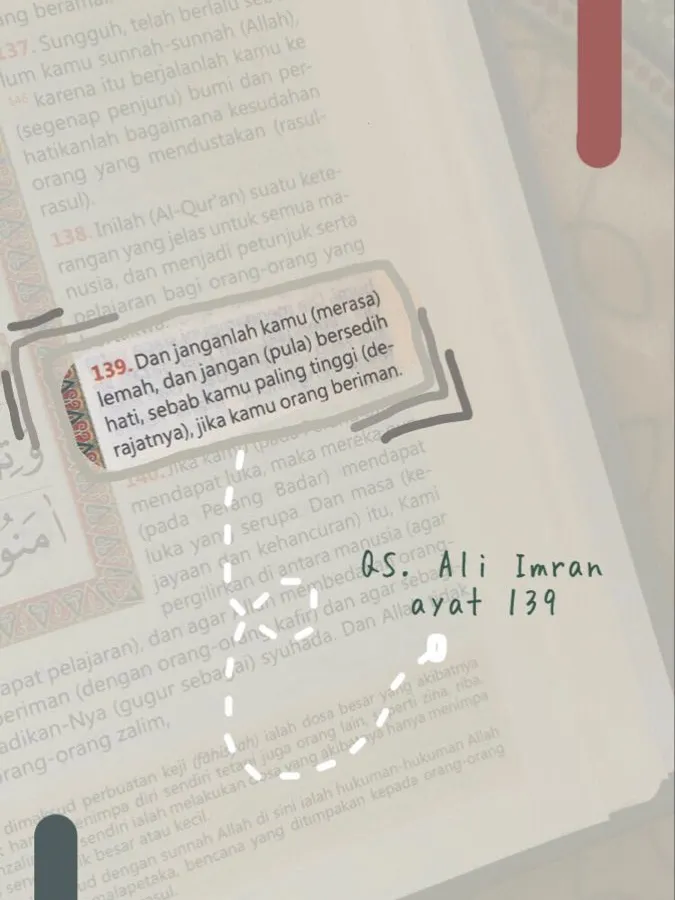 137. Sungguh, telah berlalu
lum kamu sunnah-sunnah (Allah),
146 karena itu berjalanlah kamu ke
(segenap penjuru) bumi dan per-
hatikanlah bagaimana kesudahan
orang yang mendustakan (rasul-
rasul).
138. Inilah (Al-Qur'an) suatu kete-
rangan yang jelas untuk semua ma-
nusia, dan menjadi petunjuk serta
pelajaran bagi orang-orang yang
139. Dan janganlah kamu (merasa)
lemah, dan jangan (pula) bersedih
hati, sebab kamu paling tinggi (de-
rajatnya), jika kamu orang beriman.
140. Jika kamu (pada
mendapat luka, maka mereka
(pada Perang Badar) mendapat
luka yang serupa. Dan masa (ke-
jayaan dan kehancuran) itu, Kami
pergilirkan di antara manusia (agar
membedakan orang-
QS. Ali Imran
ayat 139
apat pelajaran), dan agar orang-orang kafir) dan agar
beriman (dengan orang-orang syuhada. Dan Allah
adikan-Nya (gugur sebagai)
rang-orang zalim,
dimaksud perbuatan keji (fāhisyah) ialah dosa besar yang akibatnya
menimpa diri sendiri tetapi juga orang lain, seperti zina, riba.
sendiri ialah melakukan dosa yang akibatnya hanya menimpa
besar atau kecil.
dengan sunnah Allah di sini ialah hukuman-hukuman Allah
malapetaka, bencana yang ditimpakan kepada orang-orang